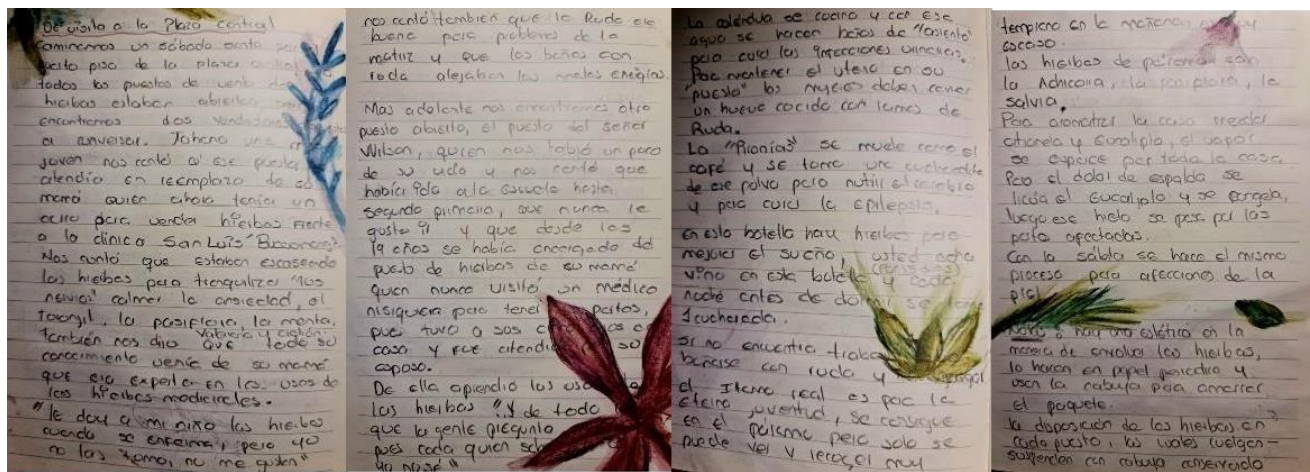 De visita a la Plaza central
Caminamos un sábado santo
piso de la plaza
todos los puestos de venta de
hierbas estaban abiertos
encontramos dos vendedoras
a conversar. Johana una
joven nos contó q' ese puesto
atendía en reemplazo de su
mamá quien ahora tenía un
para vender hierbas frente
a la clínica San Luis
Nos contó que estaban escaseando
las hierbas para tranquilizar "los
nervios" calmar la ansiedad, el
toronjil, la pasiflora, la menta,
Valeriana y
también nos dijo que todo su
conocimiento venía de su mamá
que era experta en los usos de
las hierbas medicinales.
"le doy a mi niño las hierbas
cuando se enferma, pero yo
no las tomo, no me gustan"
nos contó también que la Ruda era
buena para problemas de la
matriz y que los baños con
ruda alejaban las malas energías.
Mas adelante nos encontramos otro
puesto abierto, el puesto del señor
Wilson, quien nos habló un poco
de su vida y nos contó que
había ido a la escuela hasta
segundo primaria, que nunca le
gustó y que desde los
19 años se había encargado del
puesto de hierbas de su mamá
quien nunca visitó un médico
nisiquiera para tener partos,
pues tuvo a sus en
casa y fue atendida su
esposo.
De ella aprendió los usos
las hierbas "Y de todo
que la gente pregunta
pues cada quien sabe
La caléndula se cocina y con esa
agua se hacen baños de "asiento"
para curar las infecciones urinarias.
Para mantener el utero en su
"puesto" las mujeres deben comer
un huevo cocido con ramas de
Ruda.
La "Pionía" se muele como el
café y se toma una cucharadita
de ese polvo para nutrir el cerebro
y para curar la epilepsia.
en esta botella hay hierbas para
mejorar el sueño, usted echa
vino en esta botella y cada
noche antes de dormir se toma
1 cucharada.
Si no encuentra trabajo
bañarse con ruda y
el Itamo real es para la
eterna juventud, se consigue
en el páramo pero solo se
puede ver y recoger muy
temprano en la mañana es muy
escaso.
las hierbas de páramo son
la Achicoria, la pasiflora, la
salvia.
Para aromatizar la casa mezclar
canela y eucalipto, el vapor
se esparce por toda la casa
Para el dolor de espalda se
licúa el eucalipto y se congela,
luego ese hielo se pasa por las
partes afectadas.
Con la sábila se hace el mismo
proceso para afecciones de la
piel.
Nota: hay una estética en la
manera de envolver las hierbas,
lo hacen en papel periódico y
usan la cabuya para amarrar
el paquete.
la disposición de las hierbas en
cada puesto, las cuales cuelgan-
suspenden con cabuya conservado